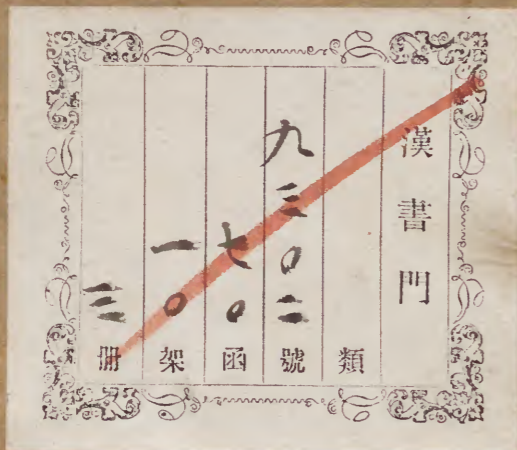 漢書門
類
九三〇二號
七〇函
一〇架
三冊